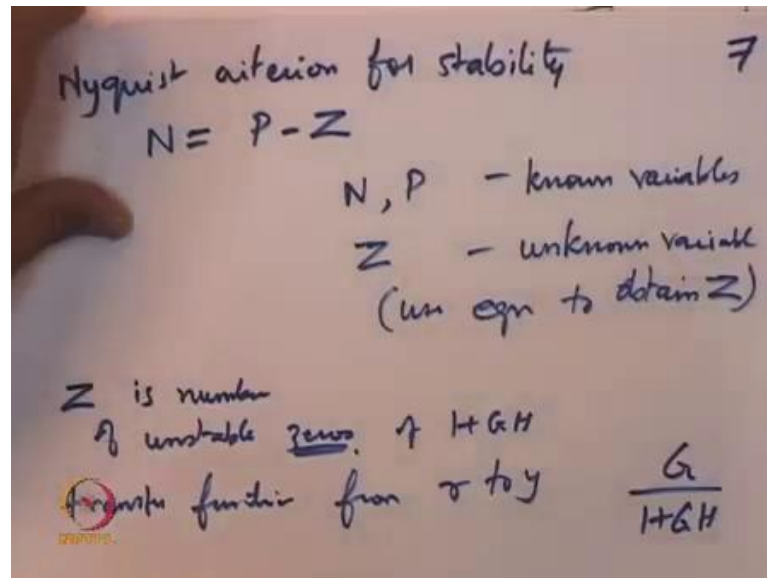 Nyquist criterion for stability 7
N = P - Z
N, P - known variables
Z - unknown variable
(use eqn to obtain Z)
Z is number
of unstable zeros of 1+GH
transfer function from r to y G/1+GH